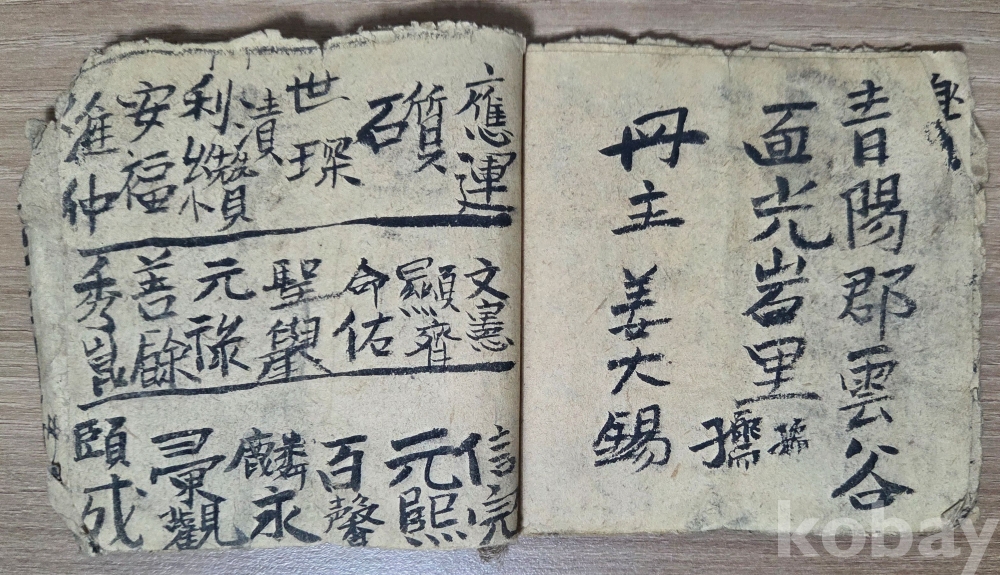 青陽郡雲谷
面光岩里
孺
丹主 姜大錫
應運
質
石
世琛
漬
利纘
安福
維仲
文憲
顯齊
命佑
聖學
元祿
善餘
秀崑
信完
元熙
百馨
麟永
彙觀
頤成
kobay